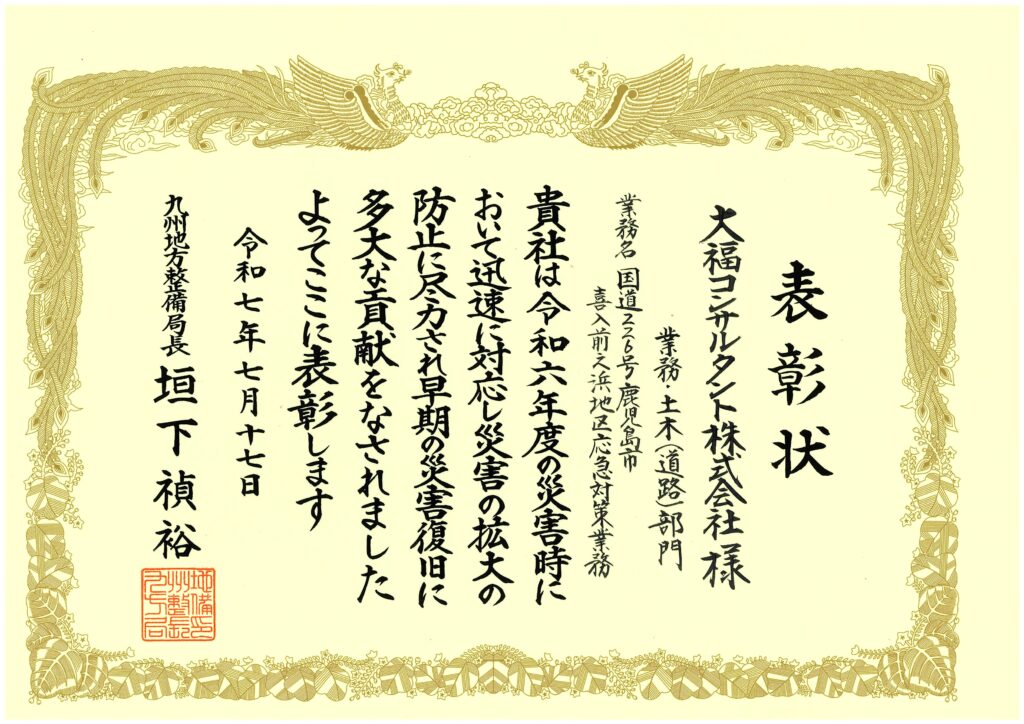 表彰状
大福コンサルタント株式会社 様
業務・土木(道路)部門
業務名 国道226号鹿児島市
喜入前之浜地区応急対策業務
貴社は令和六年度の災害時に
おいて迅速に対応し災害の拡大の
防止に尽力され早期の災害復旧に
多大な貢献をなされました
よってここに表彰します
令和七年七月十七日
九州地方整備局長 垣下禎裕